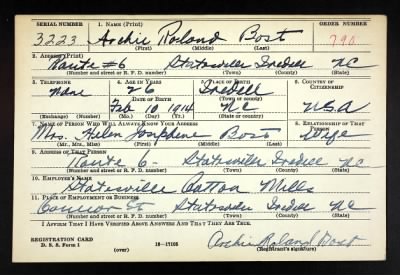 SERIAL NUMBER 1. NAME (Print) ORDER NUMBER
3223 Archie Roland Bost 790
(First) (Middle) (Last)
2. ADDRESS (Print)
Route #6 Statesville Iredell NC
(Number and street or R. F. D. number) (Town) (County) (State)
3. TELEPHONE 4. AGE IN YEARS 5. PLACE OF BIRTH 6. COUNTRY OF CITIZENSHIP
None 26 Iredell
DATE OF BIRTH (Town or county)
Feb 10 1914 NC USA
(Exchange) (Number) (Mo.) (Day) (Yr.) (State or country)
7. NAME OF PERSON WHO WILL ALWAYS KNOW YOUR ADDRESS 8. RELATIONSHIP OF THAT PERSON
Mrs. Helen Josephine Bost Wife
(Mr., Mrs., Miss) (First) (Middle) (Last)
9. ADDRESS OF THAT PERSON
Route 6 - Statesville Iredell NC
(Number and street or R. F. D. number) (Town) (County) (State)
10. EMPLOYER'S NAME
Statesville Cotton Mills
11. PLACE OF EMPLOYMENT OR BUSINESS
Connor St Statesville Iredell NC
(Number and street or R. F. D. number) (Town) (County) (State)
I AFFIRM THAT I HAVE VERIFIED ABOVE ANSWERS AND THAT THEY ARE TRUE.
REGISTRATION CARD
D. S. S. Form 1 (over) 16-17105
Archie Roland Bost
(Registrant's signature)